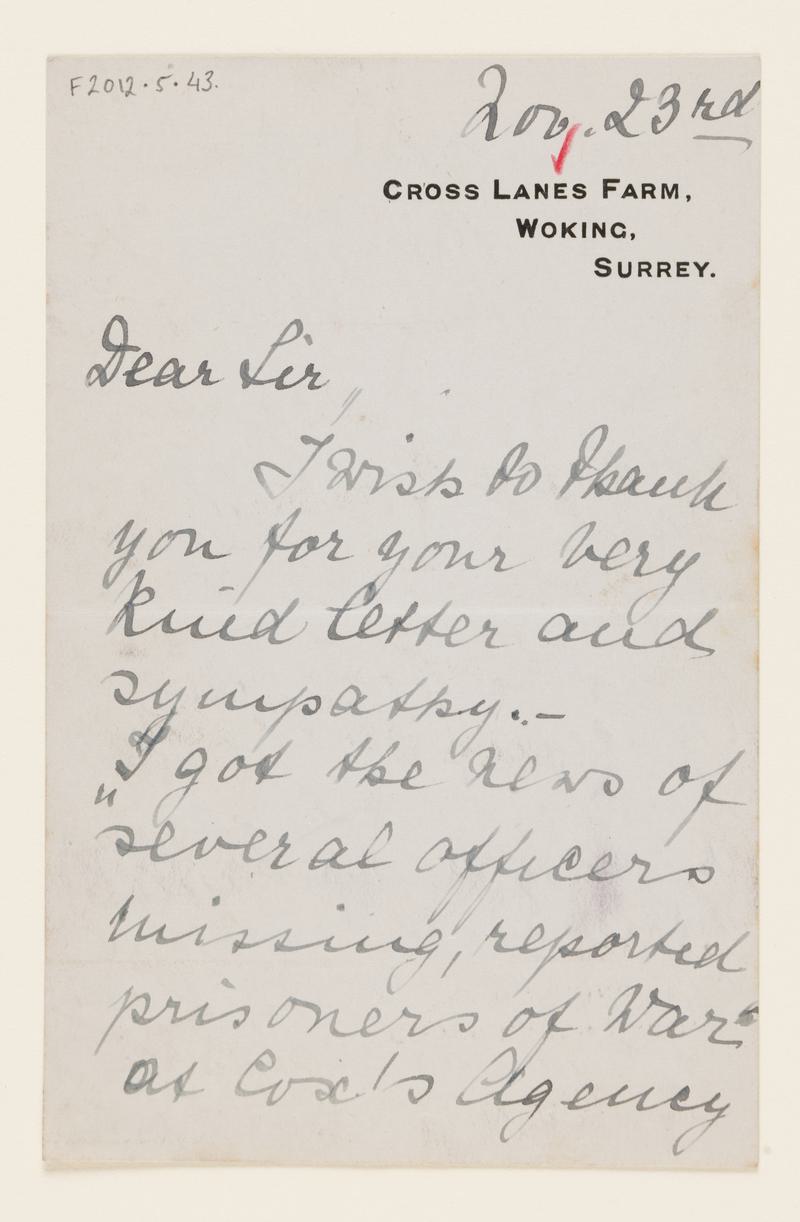 F2012.5.43.
Nov. 23rd
CROSS LANES FARM,
WOKING,
SURREY.
Dear Sir,
I wish to thank
you for your very
kind letter and
sympathy.–
„I got the news of
several officers
missing, reported
prisoners of War“
at Cox's Agency